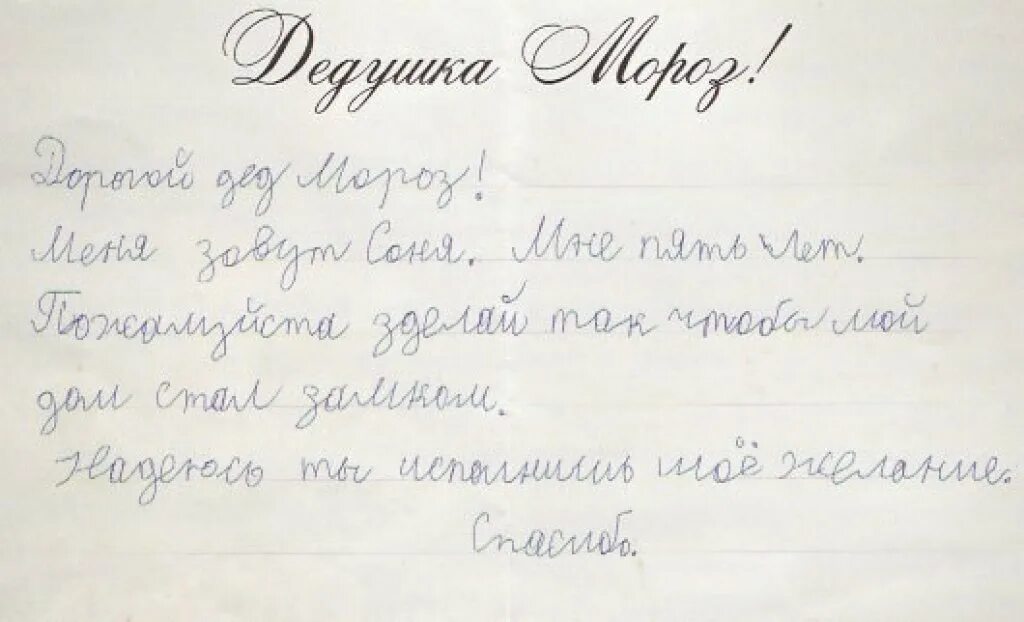 Дедушка Мороз!
Дорогой дед Мороз!
Меня зовут Соня. Мне пять лет.
Пожалуйста зделай так чтобы мой
дом стал замком.
Надеюсь ты исполнишь моё желание.
Спасибо.